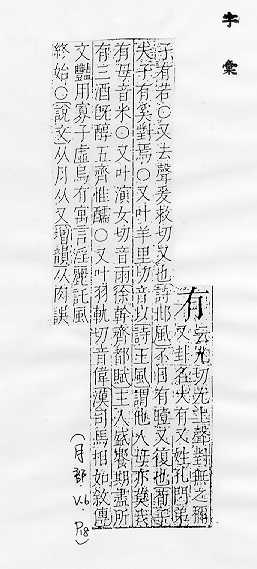 字彙
有 云九切尤上聲對無之稱
又卦名大有又姓孔門弟
子有若○又去聲爰救切又也詩邶風不日有曀又復也荀子
夫子有奚對焉○又叶羊里切音以詩王風謂他人母亦莫我
有母音米○又叶演女切音雨徐幹齊都賦主人盛饗期盡所
有三酒旣醇五齊惟醹○又叶羽軌切音偉漢司馬相如敘傳
文豔用寡子虛烏有寓言淫麗託風
終始○說文从月从又增韻从肉誤
(月部 V.6 P.18)